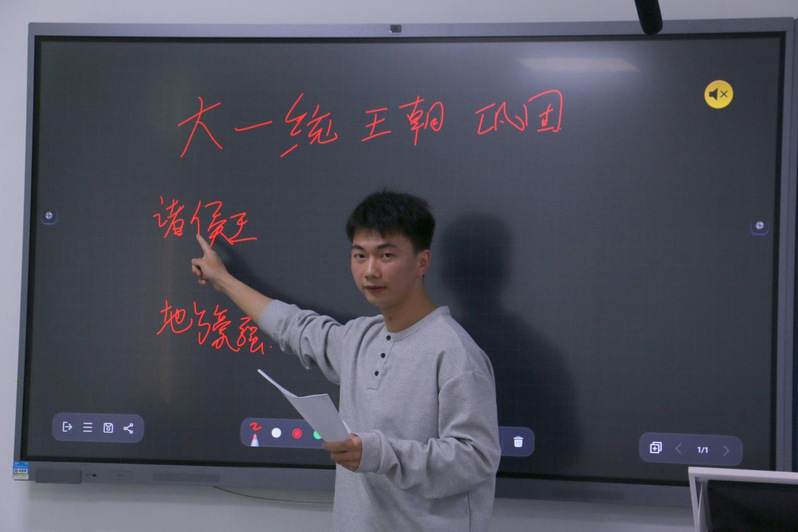 大一统王朝 巩固
诸侯王
地方豪强
1/1